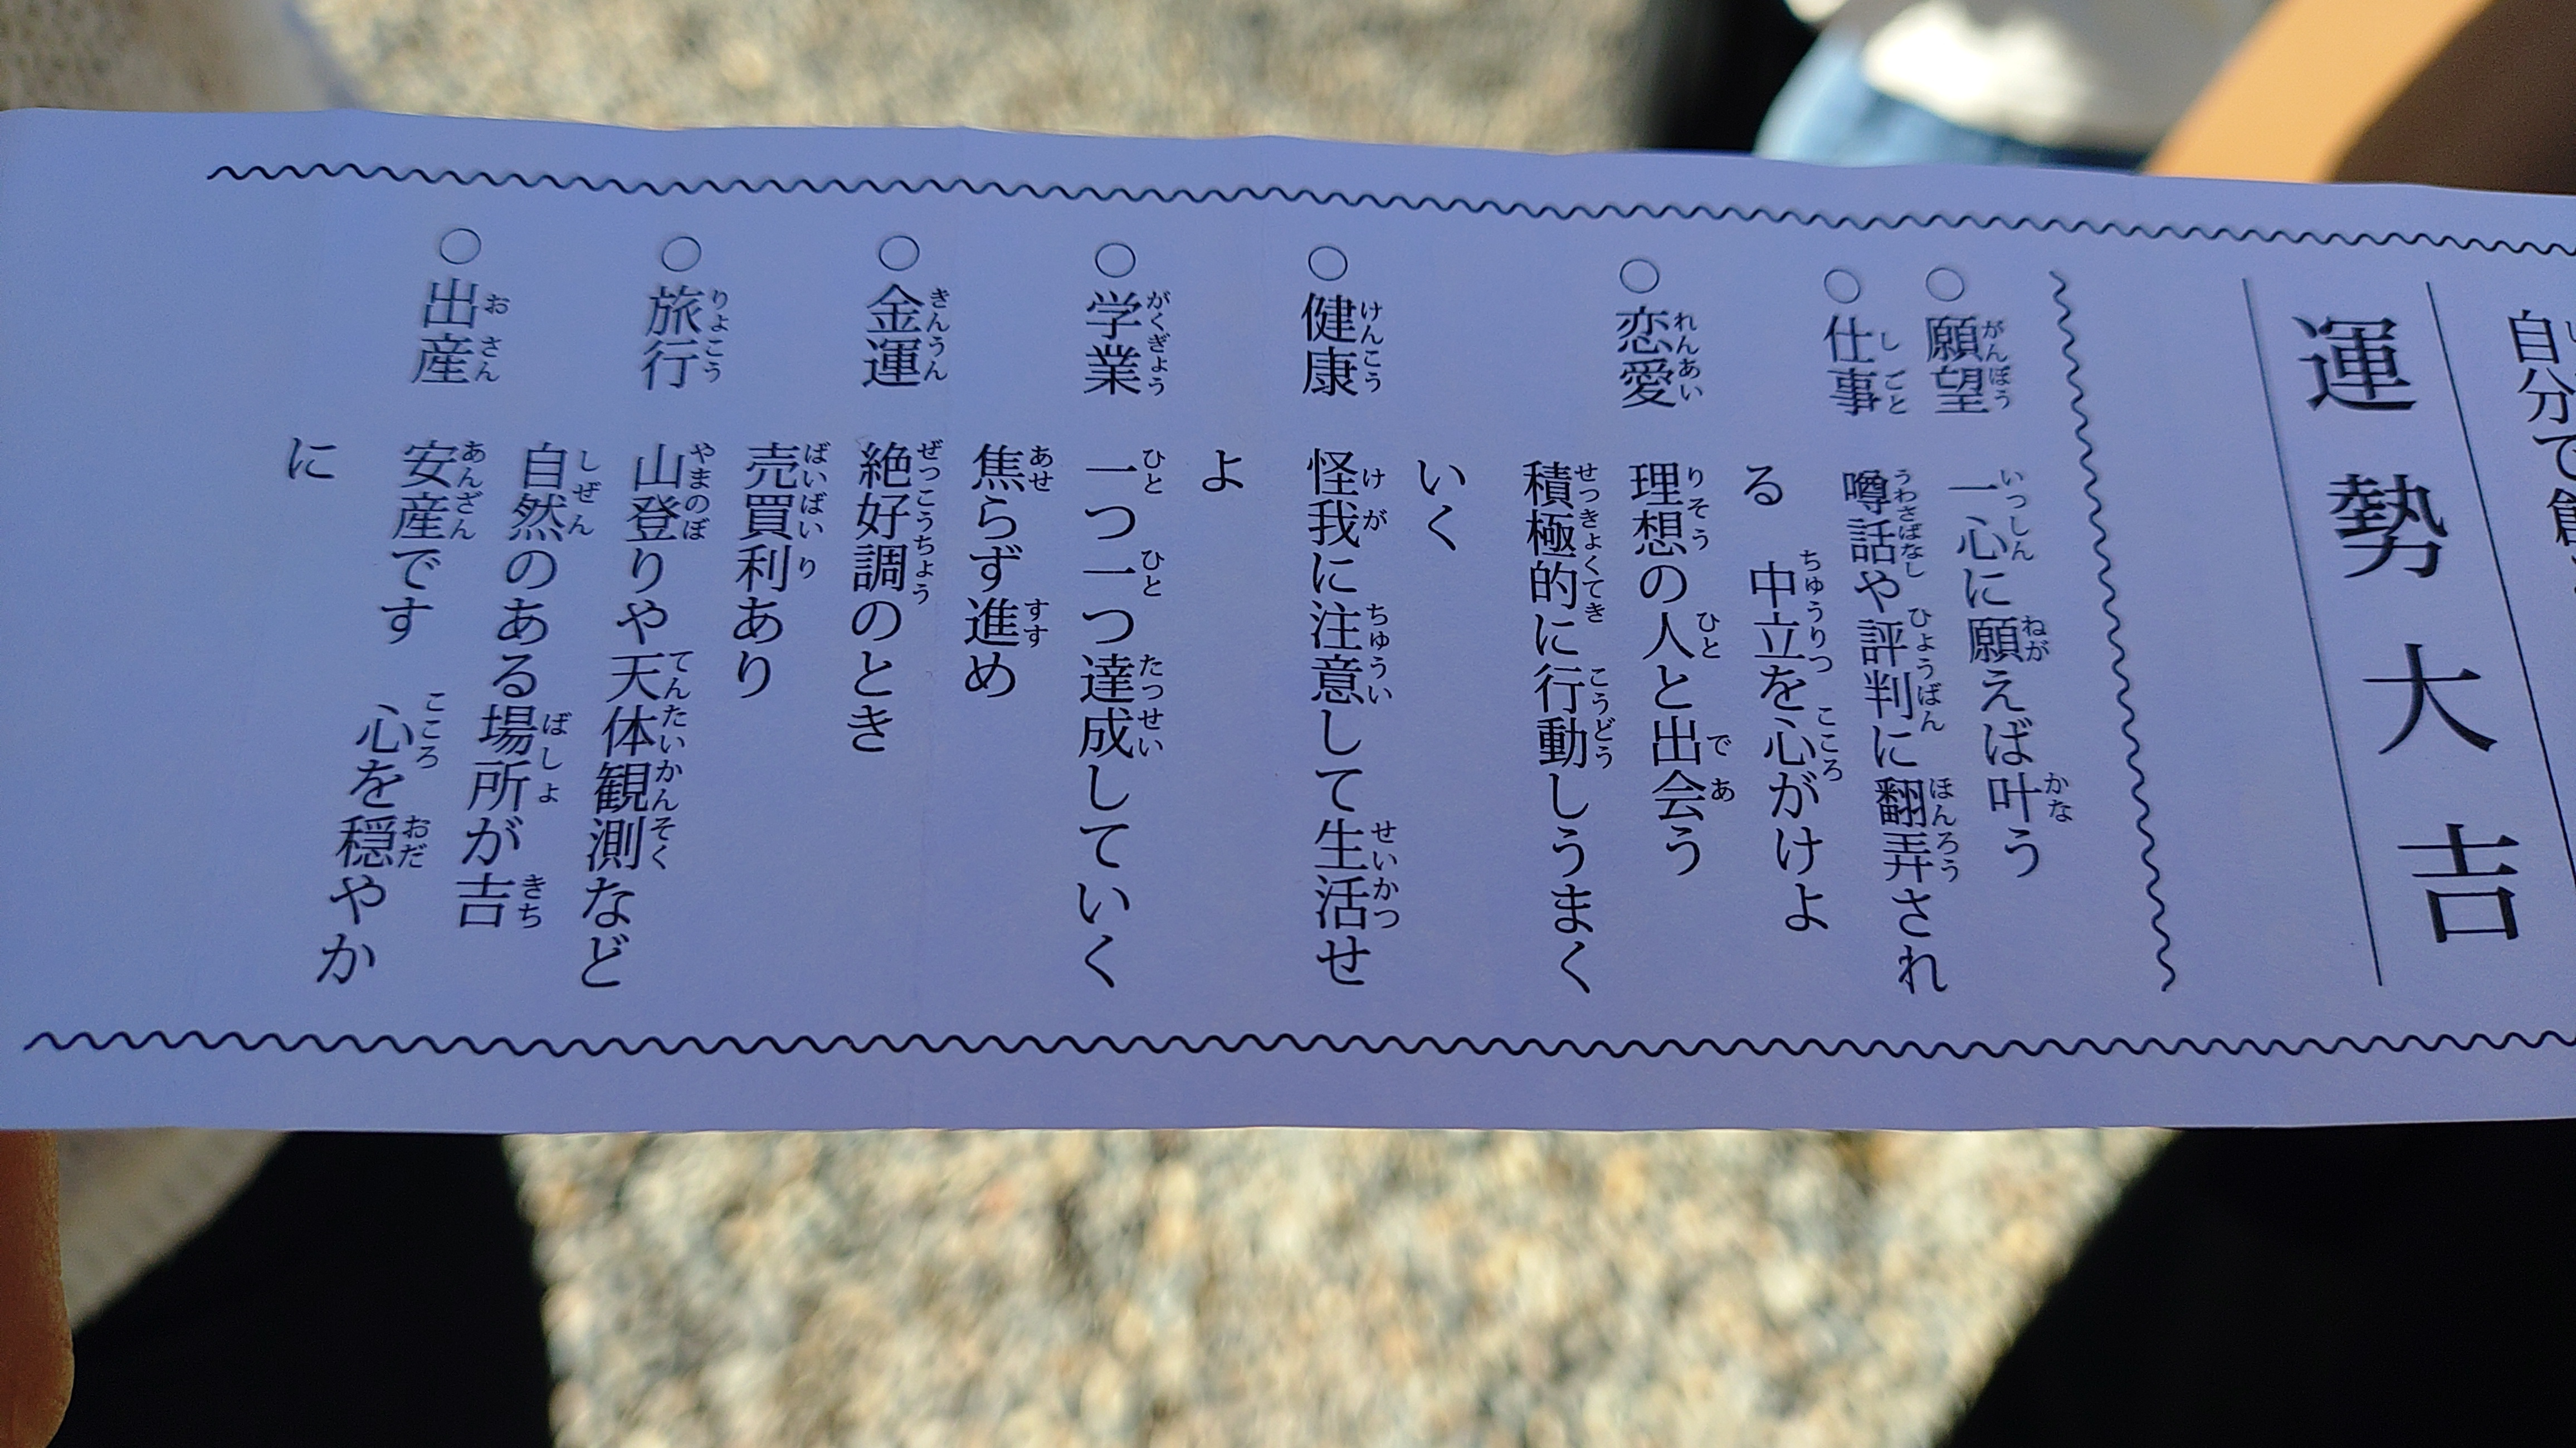 自分で
運勢大吉
○願望 一心に願えば叶う
○仕事 噂話や評判に翻弄され
る 中立を心がけよ
○恋愛 理想の人と出会う
積極的に行動しうまく
いく
○健康 怪我に注意して生活せ
よ
○学業 一つ一つ達成していく
焦らず進め
○金運 絶好調のとき
売買利あり
○旅行 山登りや天体観測など
自然のある場所が吉
○出産 安産です 心を穏やか
に